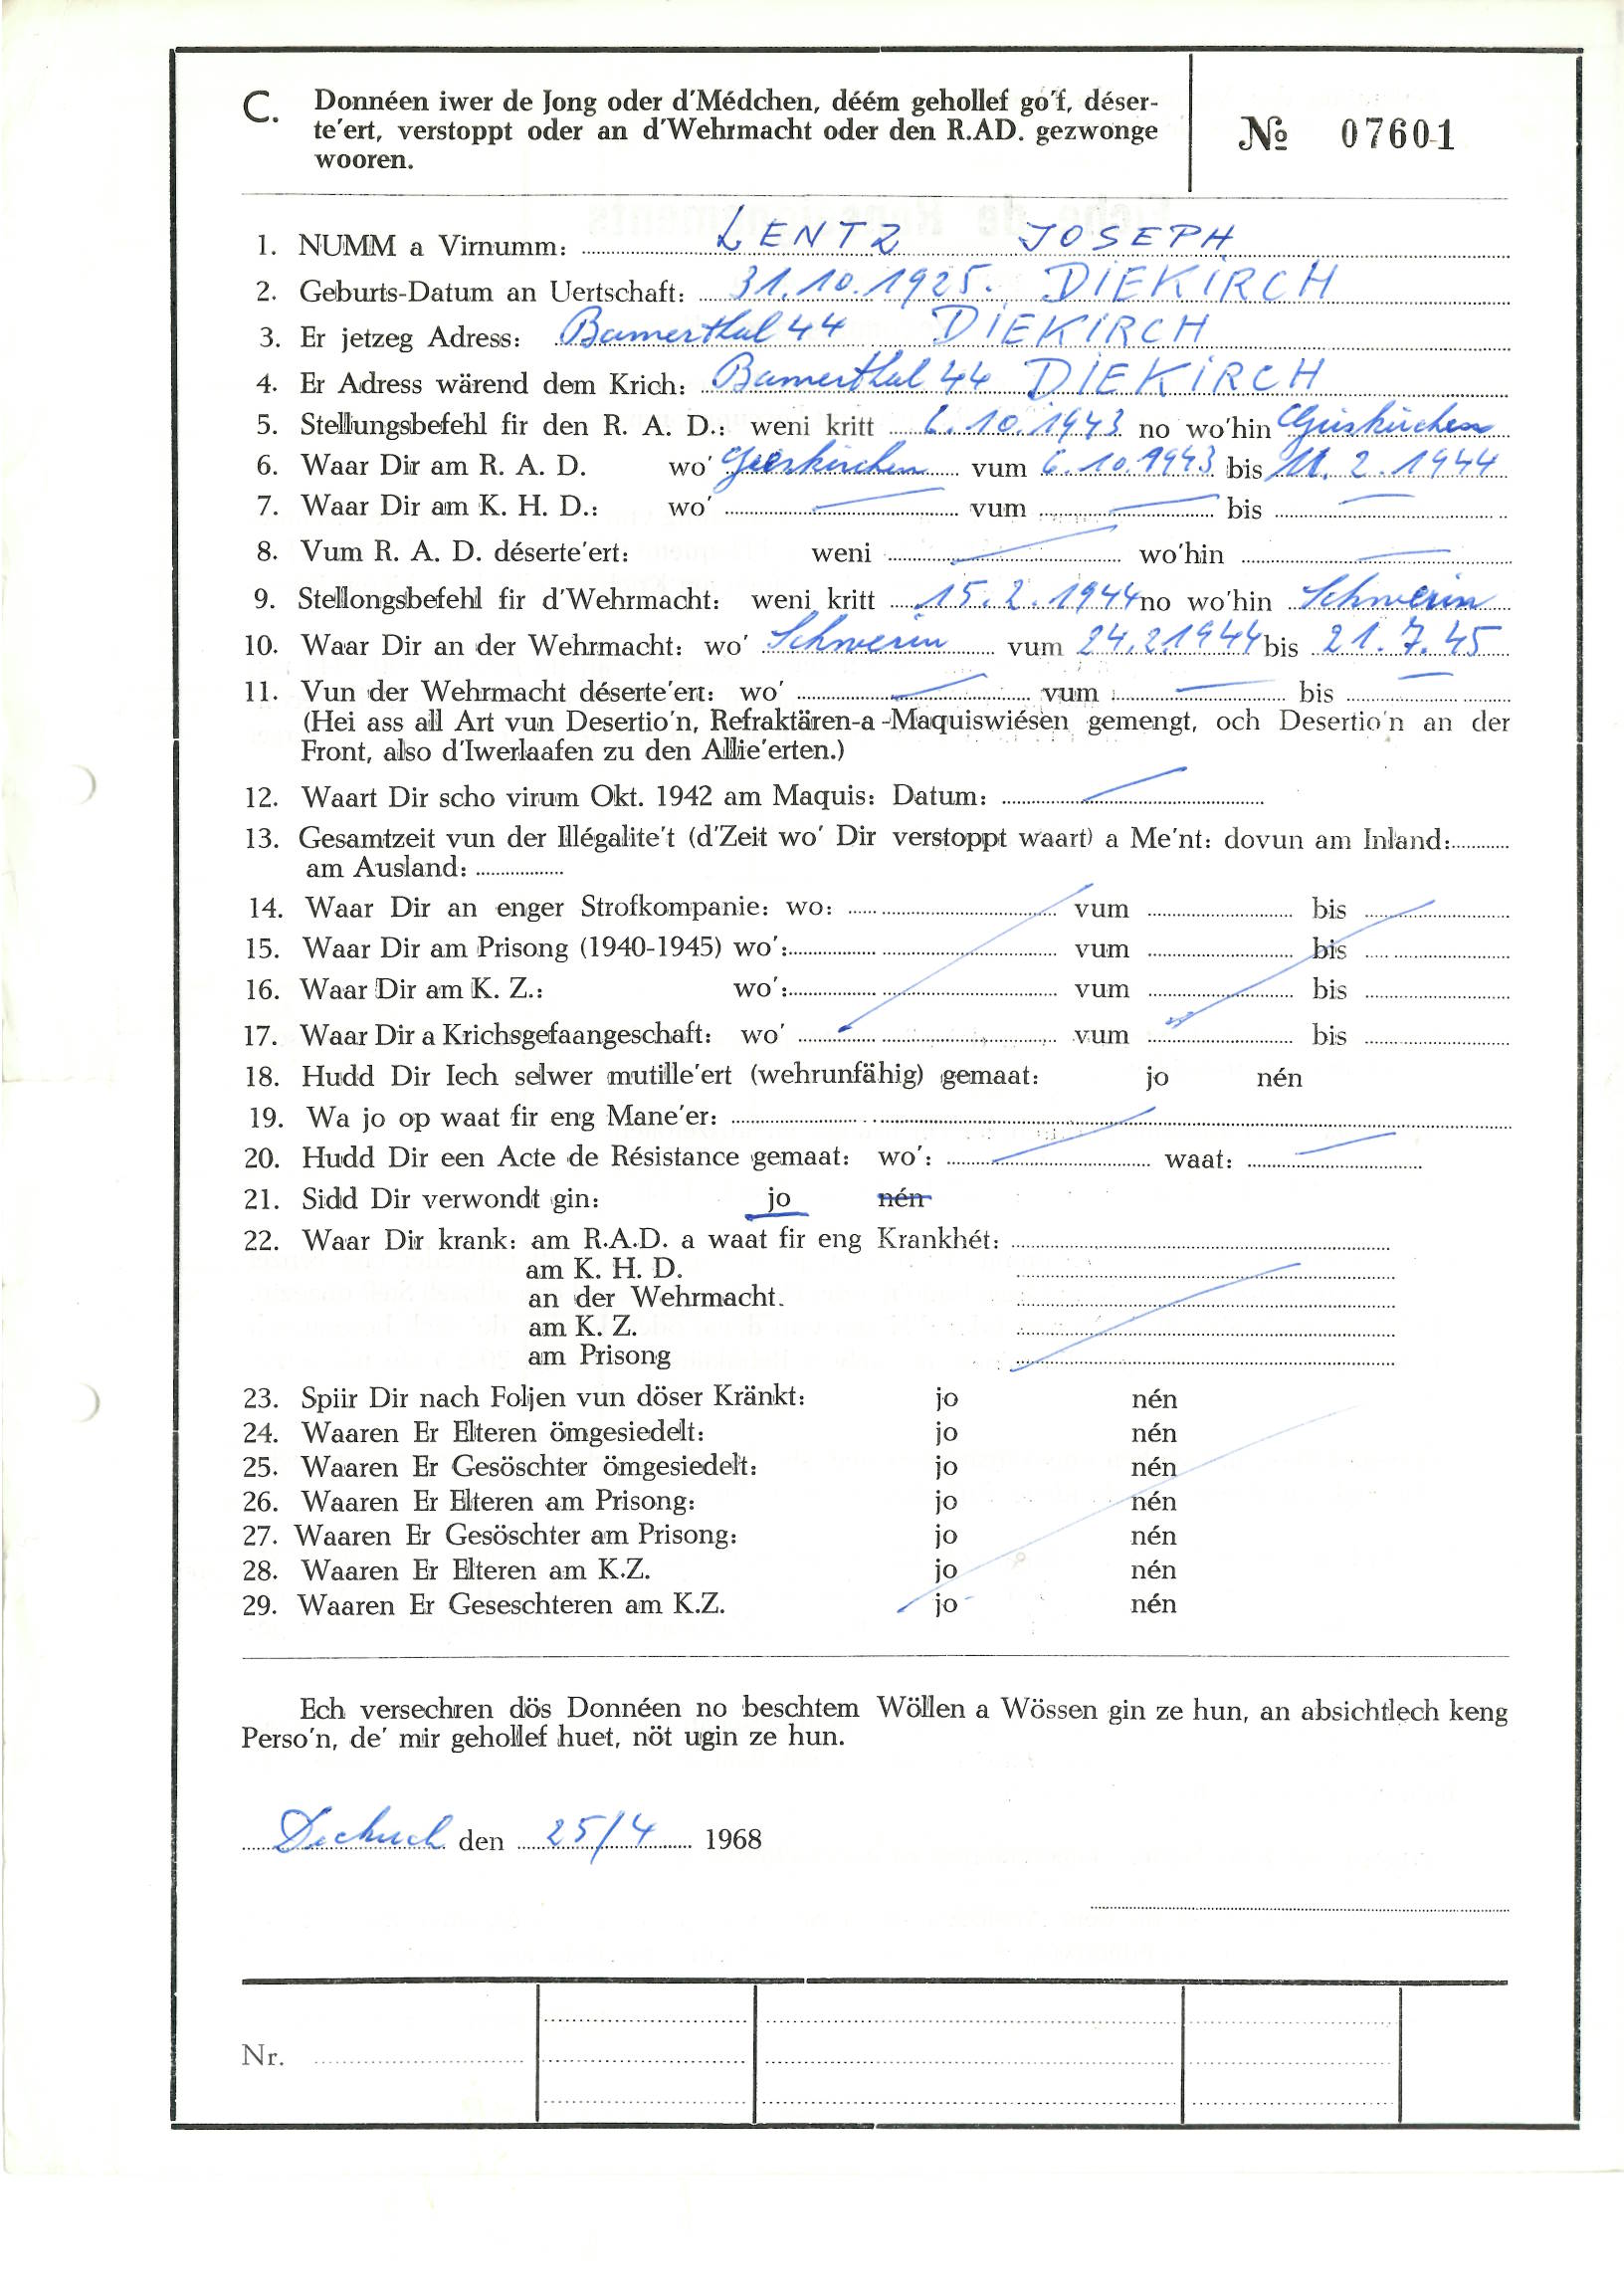 C. Donnéen iwer de Jong oder d'Médchen, déém gehollef go'f, déser-
te'ert, verstoppt oder an d'Wehrmacht oder den R.AD. gezwonge
wooren.
№ 07601
1. NUMM a Virnumm: LENTZ JOSEPH
2. Geburts-Datum an Uertschaft: 31.10.1925. DIEKIRCH
3. Er jetzeg Adress: Bamerthal 44 DIEKIRCH
4. Er Adress wärend dem Krich: Bamerthal 44 DIEKIRCH
5. Stellungsbefehl fir den R. A. D.: weni kritt 6.10.1943 no wo'hin
6. Waar Dir am R. A. D. wo' vum 6.10.1943 bis 11.2.1944
7. Waar Dir am K. H. D.: wo' vum bis
8. Vum R. A. D. déserte'ert: weni wo'hin
9. Stellongsbefehl fir d'Wehrmacht: weni kritt 15.2.1944 no wo'hin Schwerin
10. Waar Dir an der Wehrmacht: wo' Schwerin vum 24.2.1944 bis 21.7.45
11. Vun der Wehrmacht déserte'ert: wo' vum bis
(Hei ass all Art vun Desertio'n, Refraktären-a-Maquiswiésen gemengt, och Desertio'n an der
Front, also d'Iwerlaafen zu den Allie'erten.)
12. Waart Dir scho virum Okt. 1942 am Maquis: Datum:
13. Gesamtzeit vun der Illégalite't (d'Zeit wo' Dir verstoppt waart) a Me'nt: dovun am Inland:
am Ausland:
14. Waar Dir an enger Strofkompanie: wo: vum bis
15. Waar Dir am Prisong (1940-1945) wo': vum bis
16. Waar Dir am K. Z.: wo': vum bis
17. Waar Dir a Krichsgefaangeschaft: wo' vum bis
18. Hudd Dir Iech selwer mutille'ert (wehrunfähig) gemaat: jo nén
19. Wa jo op waat fir eng Mane'er:
20. Hudd Dir een Acte de Résistance gemaat: wo': waat:
21. Sidd Dir verwondt gin: jo nén
22. Waar Dir krank: am R.A.D. a waat fir eng Krankhét:
am K. H. D.
an der Wehrmacht.
am K. Z.
am Prisong
23. Spiir Dir nach Foljen vun döser Kränkt: jo nén
24. Waaren Er Elteren ömgesiedelt: jo nén
25. Waaren Er Gesöschter ömgesiedelt: jo nén
26. Waaren Er Elteren am Prisong: jo nén
27. Waaren Er Gesöschter am Prisong: jo nén
28. Waaren Er Elteren am K.Z. jo nén
29. Waaren Er Geseschteren am K.Z. jo nén
Ech versechren dös Donnéen no beschtem Wöllen a Wössen gin ze hun, an absichtlech keng
Perso'n, de' mir gehollef huet, nöt ugin ze hun.
den 25/4 1968
Nr.